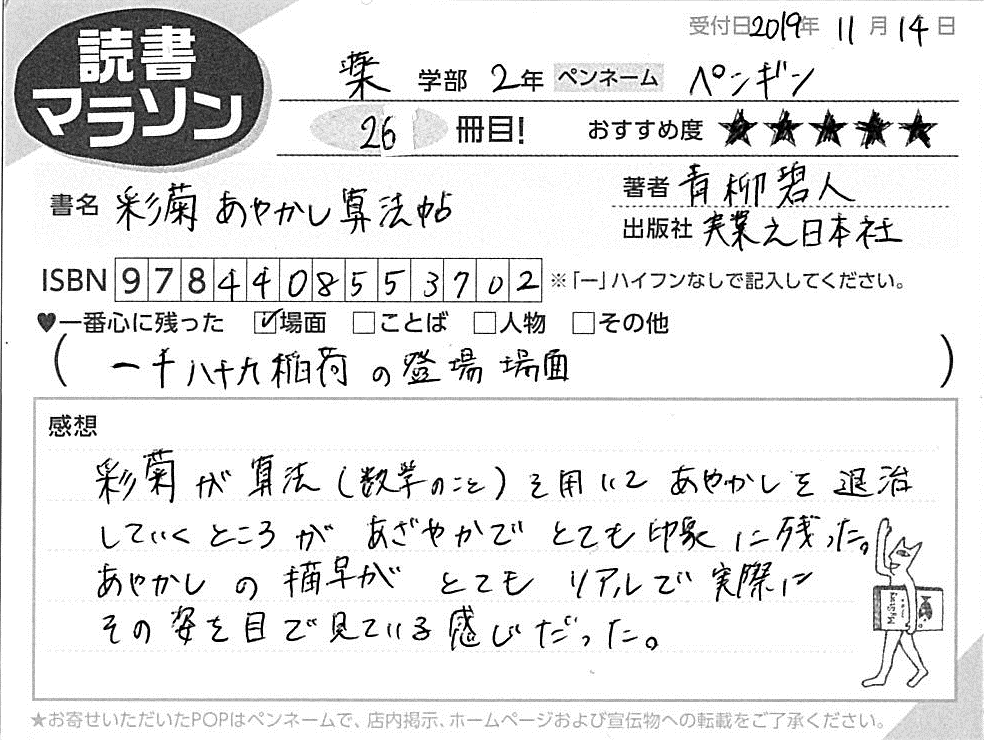 読書
マラソン
受付日2019年 11月14日
薬 学部 2年 ペンネーム ペンギン
26 冊目! おすすめ度 ★★★★★
書名 彩菊あやかし算法帖
著者 青柳碧人
出版社 実業之日本社
ISBN 9784408553702 ※「ー」ハイフンなしで記入してください。
♥一番心に残った ☑場面 □ことば □人物 □その他
( 一千八十九稲荷の登場場面 )
感想
彩菊が算法(数学のこと)を用いてあやかしを退治
していくところがあざやかでとても印象に残った。
あやかしの描写がとてもリアルで実際に
その姿を目で見ている感じだった。
★お寄せいただいたPOPはペンネームで、店内掲示、ホームページおよび宣伝物への転載をご了承ください。